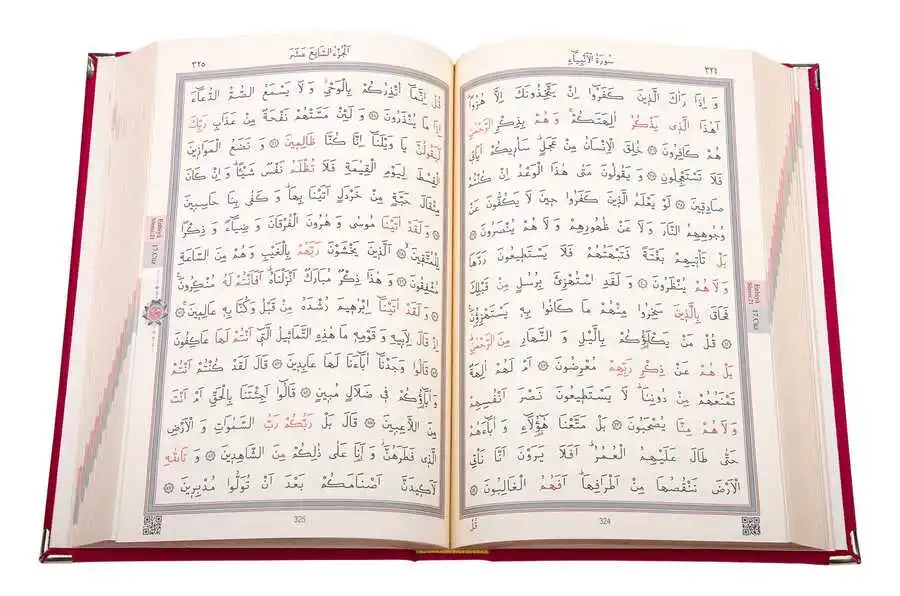 سُورَةُ الْاَنْبِيَاءِ
٣٢٤
وَاِذَا رَاٰكَ الَّذِينَ كَفَرُٓوا اِنْ يَتَّخِذُونَكَ اِلَّا هُزُوًاۜ
اَهٰذَا الَّذِي يَذْكُرُ اٰلِهَتَكُمْۚ وَهُمْ بِذِكْرِ الرَّحْمٰنِ
هُمْ كَافِرُونَ ﴿٣٦﴾ خُلِقَ الْاِنْسَانُ مِنْ عَجَلٍۜ سَاُرِيكُمْ اٰيَاتِي
فَلَا تَسْتَعْجِلُونِ ﴿٣٧﴾ وَيَقُولُونَ مَتٰى هٰذَا الْوَعْدُ اِنْ كُنْتُمْ
صَادِقِينَ ﴿٣٨﴾ لَوْ يَعْلَمُ الَّذِينَ كَفَرُوا حِينَ لَا يَكُفُّونَ عَنْ
وُجُوهِهِمُ النَّارَ وَلَا عَنْ ظُهُورِهِمْ وَلَا هُمْ يُنْصَرُونَ ﴿٣٩﴾
بَلْ تَأْتِيهِمْ بَغْتَةً فَتَبْهَتُهُمْ فَلَا يَسْتَطِيعُونَ رَدَّهَا
وَلَا هُمْ يُنْظَرُونَ ﴿٤٠﴾ وَلَقَدِ اسْتُهْزِئَ بِرُسُلٍ مِنْ قَبْلِكَ
فَحَاقَ بِالَّذِينَ سَخِرُوا مِنْهُمْ مَا كَانُوا بِهِ يَسْتَهْزِؤُنَ۟
﴿٤١﴾ قُلْ مَنْ يَكْلَؤُكُمْ بِالَّيْلِ وَالنَّهَارِ مِنَ الرَّحْمٰنِۜ
بَلْ هُمْ عَنْ ذِكْرِ رَبِّهِمْ مُعْرِضُونَ ﴿٤٢﴾ اَمْ لَهُمْ اٰلِهَةٌ
تَمْنَعُهُمْ مِنْ دُونِنَاۜ لَا يَسْتَطِيعُونَ نَصْرَ اَنْفُسِهِمْ
وَلَا هُمْ مِنَّا يُصْحَبُونَ ﴿٤٣﴾ بَلْ مَتَّعْنَا هٰٓؤُ۬لَٓاءِ وَاٰبَٓاءَهُمْ
حَتّٰى طَالَ عَلَيْهِمُ الْعُمُرُۜ اَفَلَا يَرَوْنَ اَنَّا نَأْتِي
الْاَرْضَ نَنْقُصُهَا مِنْ اَطْرَافِهَاۜ اَفَهُمُ الْغَالِبُونَ ﴿٤٤﴾
324
قُلْ
Enbiyâ Sûresi:21
17.Cüz
اَلْجُزْءُ السَّابِعَ عَشَرَ
٣٢٥
قُلْ اِنَّمَٓا اُنْذِرُكُمْ بِالْوَحْيِۘ وَلَا يَسْمَعُ الصُّمُّ الدُّعَٓاءَ
اِذَا مَا يُنْذَرُونَ ﴿٤٥﴾ وَلَئِنْ مَسَّتْهُمْ نَفْحَةٌ مِنْ عَذَابِ رَبِّكَ
لَيَقُولُنَّ يَا وَيْلَنَٓا اِنَّا كُنَّا ظَالِمِينَ ﴿٤٦﴾ وَنَضَعُ الْمَوَازِينَ
الْقِسْطَ لِيَوْمِ الْقِيٰمَةِ فَلَا تُظْلَمُ نَفْسٌ شَيْـًٔاۜ وَاِنْ كَانَ
مِثْقَالَ حَبَّةٍ مِنْ خَرْدَلٍ اَتَيْنَا بِهَاۜ وَكَفٰى بِنَا حَاسِبِينَ
﴿٤٧﴾ وَلَقَدْ اٰتَيْنَا مُوسٰى وَهٰرُونَ الْفُرْقَانَ وَضِيَٓاءً وَذِكْرًا
لِلْمُتَّقِينَۙ ﴿٤٨﴾ اَلَّذِينَ يَخْشَوْنَ رَبَّهُمْ بِالْغَيْبِ وَهُمْ مِنَ السَّاعَةِ
مُشْفِقُونَ ﴿٤٩﴾ وَهٰذَا ذِكْرٌ مُبَارَكٌ اَنْزَلْنَاهُۜ اَفَاَنْتُمْ لَهُ مُنْكِرُونَ۟
﴿٥٠﴾ وَلَقَدْ اٰتَيْنَٓا اِبْرٰهِيمَ رُشْدَهُ مِنْ قَبْلُ وَكُنَّا بِهِ عَالِمِينَۚ ﴿٥١﴾
اِذْ قَالَ لِاَبِيهِ وَقَوْمِهِ مَا هٰذِهِ التَّمَاثِيلُ الَّتِي اَنْتُمْ لَهَا عَاكِفُونَ
﴿٥٢﴾ قَالُوا وَجَدْنَٓا اٰبَٓاءَنَا لَهَا عَابِدِينَ ﴿٥٣﴾ قَالَ لَقَدْ كُنْتُمْ اَنْتُمْ
وَاٰبَٓاؤُ۬كُمْ فِي ضَلَالٍ مُبِينٍ ﴿٥٤﴾ قَالُٓوا اَجِئْتَنَا بِالْحَقِّ اَمْ اَنْتَ
مِنَ اللَّاعِبِينَ ﴿٥٥﴾ قَالَ بَلْ رَبُّكُمْ رَبُّ السَّمٰوَاتِ وَالْاَرْضِ
الَّذِي فَطَرَهُنَّۘ وَاَنَا۬ عَلٰى ذٰلِكُمْ مِنَ الشَّاهِدِينَ ﴿٥٦﴾ وَتَاللّٰهِ
لَاَكِيدَنَّ اَصْنَامَكُمْ بَعْدَ اَنْ تُوَلُّوا مُدْبِرِينَ ﴿٥٧﴾
325
Enbiyâ Sûresi:21
17.Cüz